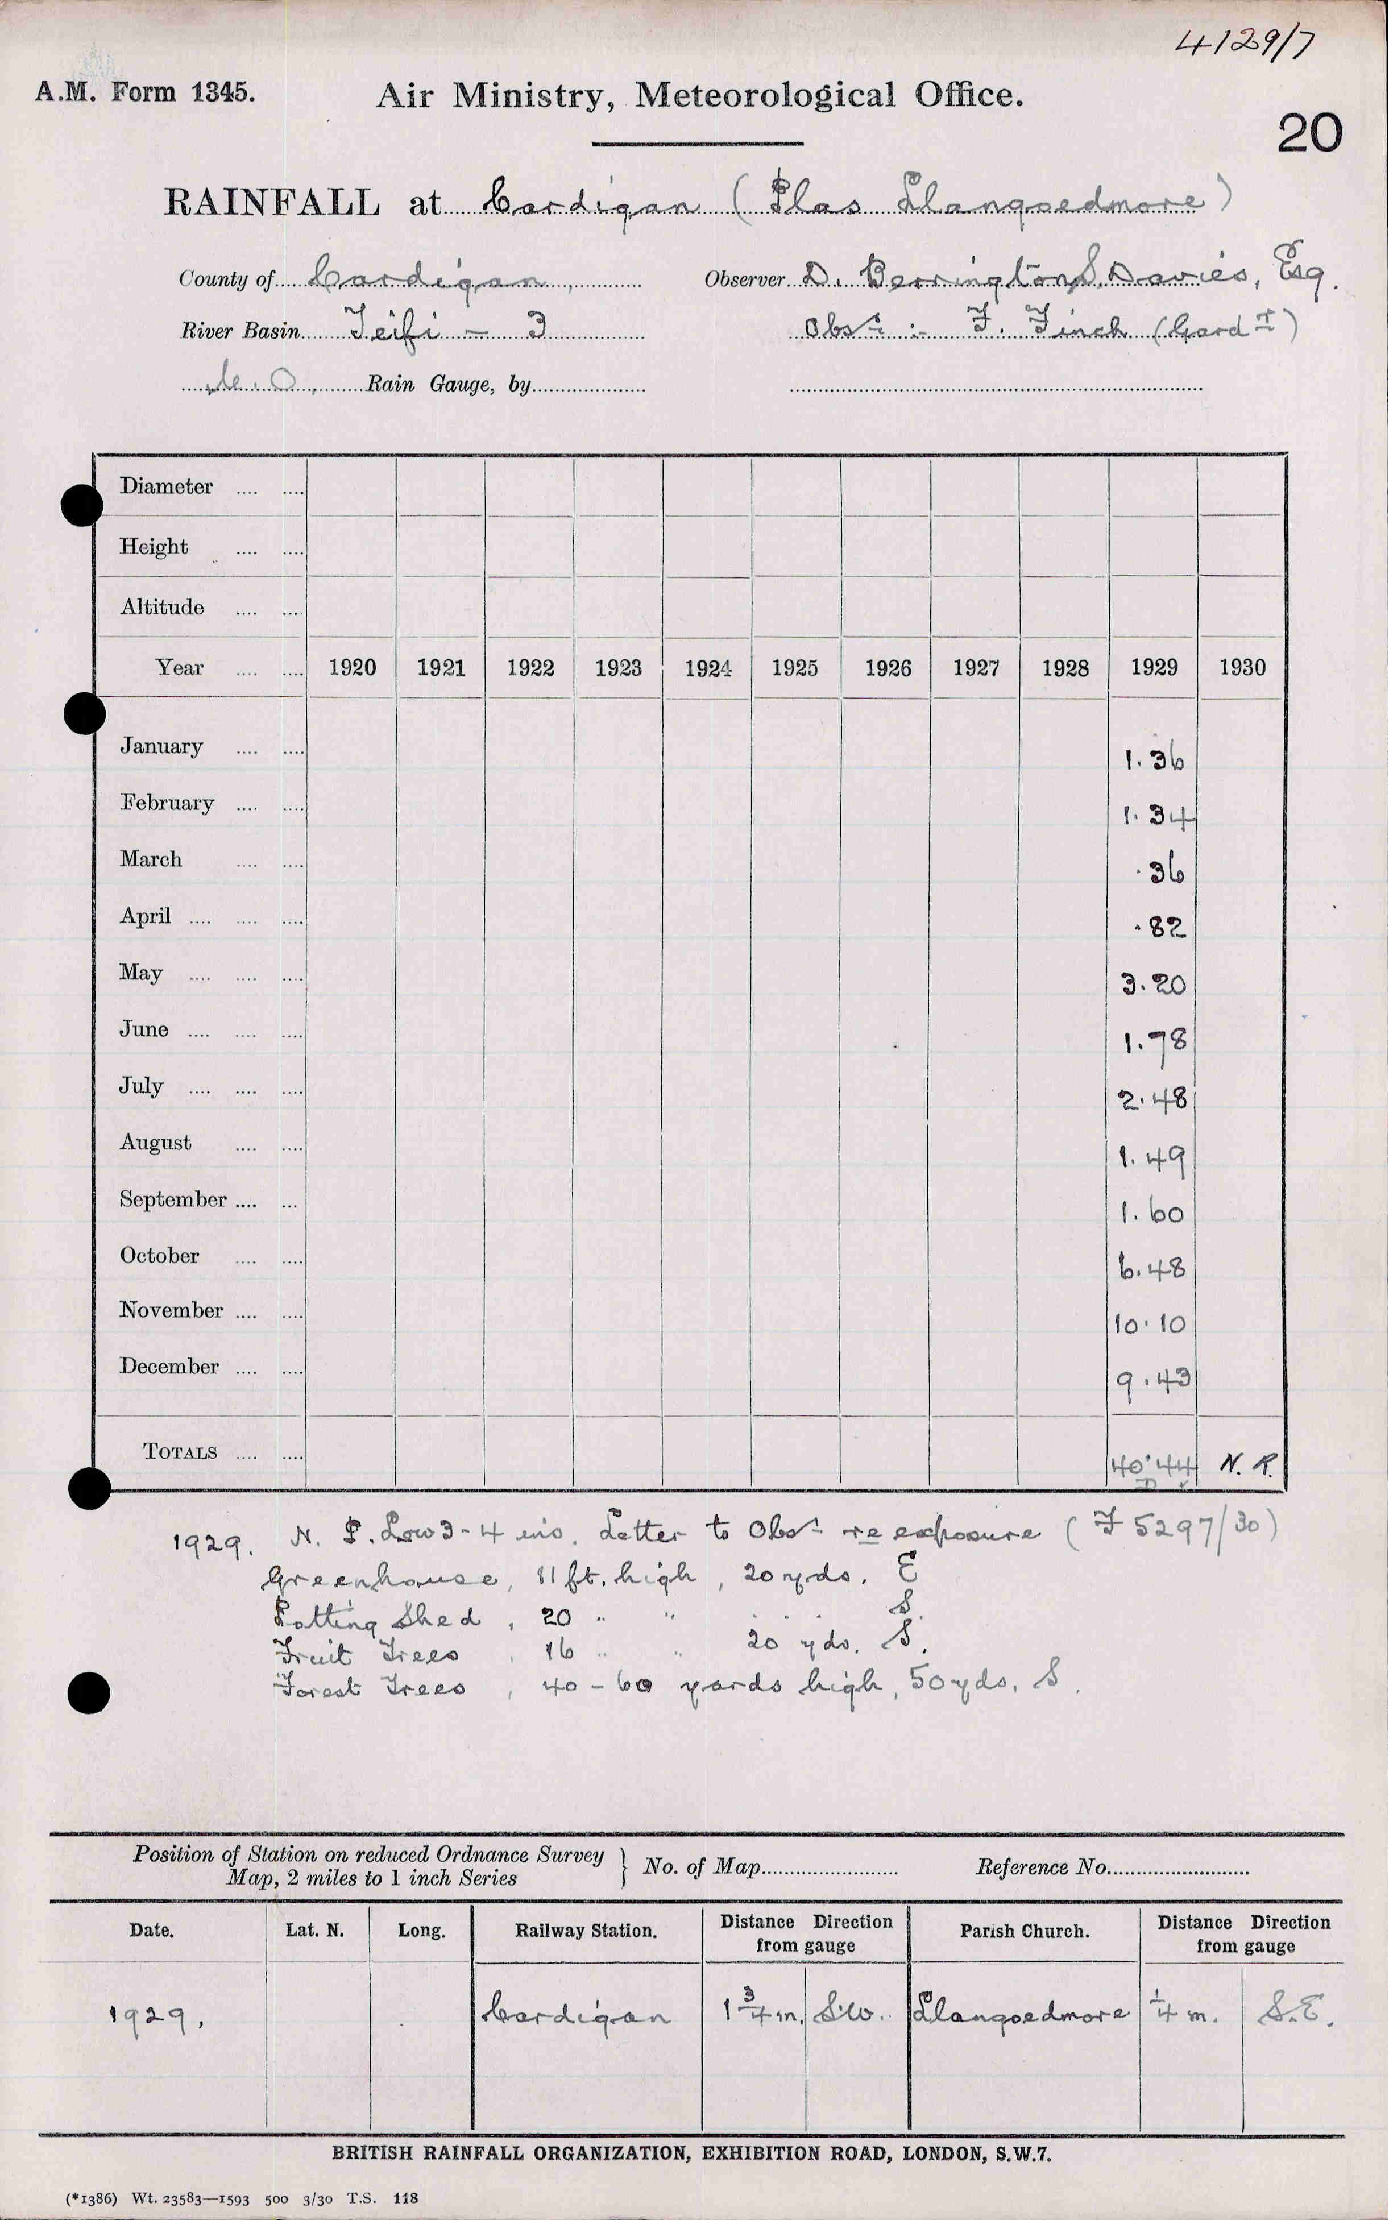 4129/7
A.M. Form 1345.
Air Ministry, Meteorological Office.
20
RAINFALL at Cardigan (Plas Llangoedmore)
County of Cardigan, Observer D. Berrington S. Davies, Esq.
River Basin Teifi — 3 Obsr :- F. Finch (Gardr)
M.O. Rain Gauge, by
Diameter
Height
Altitude
Year 1920 1921 1922 1923 1924 1925 1926 1927 1928 1929 1930
January 1.36
February 1.34
March .36
April .82
May 3.20
June 1.78
July 2.48
August 1.49
September 1.60
October 6.48
November 10.10
December 9.43
TOTALS 40.44 N.R.
1929. N. P. Low 3-4 ins. Letter to Obsr re exposure (F 5297/30)
Greenhouse, 11 ft. high, 20 yds. E
Potting Shed, 20 " " . . . S.
Fruit Trees, 16 " " 20 yds. S.
Forest Trees, 40-60 yards high, 50 yds. S.
Position of Station on reduced Ordnance Survey
Map, 2 miles to 1 inch Series } No. of Map Reference No.
Date. Lat. N. Long. Railway Station. Distance Direction from gauge Parish Church. Distance Direction from gauge
1929. Cardigan 1 3/4 m. S.W. Llangoedmore 1/4 m. S.E.
BRITISH RAINFALL ORGANIZATION, EXHIBITION ROAD, LONDON, S.W.7.
(*1386) Wt. 23583—1593 500 3/30 T.S. 118